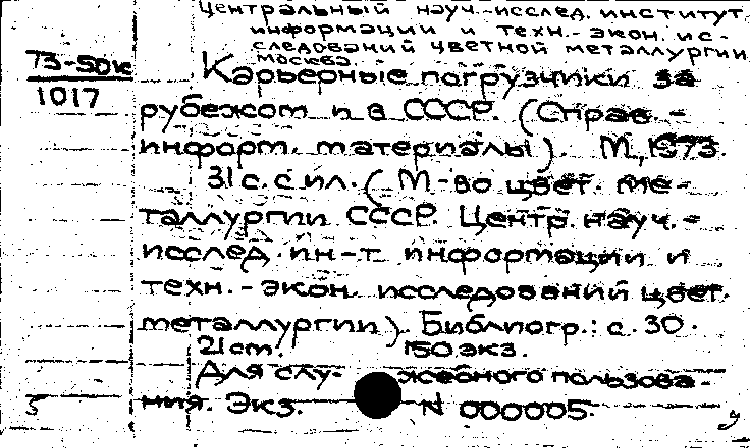 Центральный науч.-исслед. институт
информации и техн.-экон. ис-
следований цветной металлургии
Москва.
73-50к
1017
Карьерные погрузчики за
рубежом и в СССР. (Справ.-
информ. материалы). М., 1973.
31 с. с ил. (М-во цвет. ме-
таллургии СССР. Центр. науч.-
исслед. ин-т информации и
техн.-экон. исследований цвет.
металлургии). Библиогр.: с. 30.
21 cm. 150 экз.
Для слу- жебного пользова-
ния. Экз. N 000005.
5
у